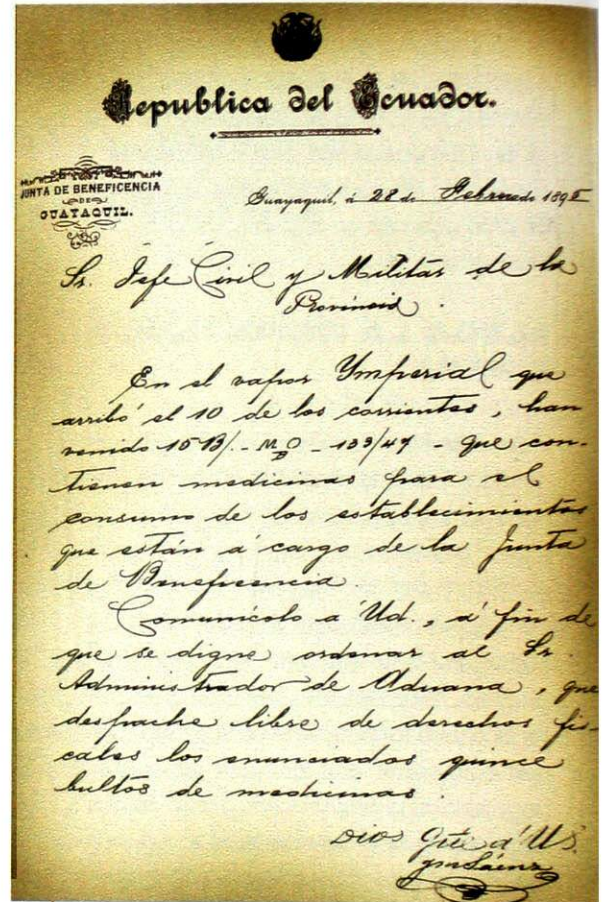 Republica del Ecuador.
JUNTA DE BENEFICENCIA
DE
GUAYAQUIL.
Guayaquil, á 28 de Febrero de 189
Sr. Jefe Civil y Militar de la
Provincia.
En el vapor Ymperial que
arribó el 10 de los corrientes, han
venido 15 B/. - - 133/47 - que con-
tienen medicinas para el
consumo de los establecimientos
que están á cargo de la Junta
de Beneficencia.
Comunícolo a Ud., á fin de
que se digne ordenar al Sr.
Administrador de Aduana, que
despache libre de derechos fis-
cales los enunciados quince
bultos de medicinas.
Dios Gue á US.
Sáenz